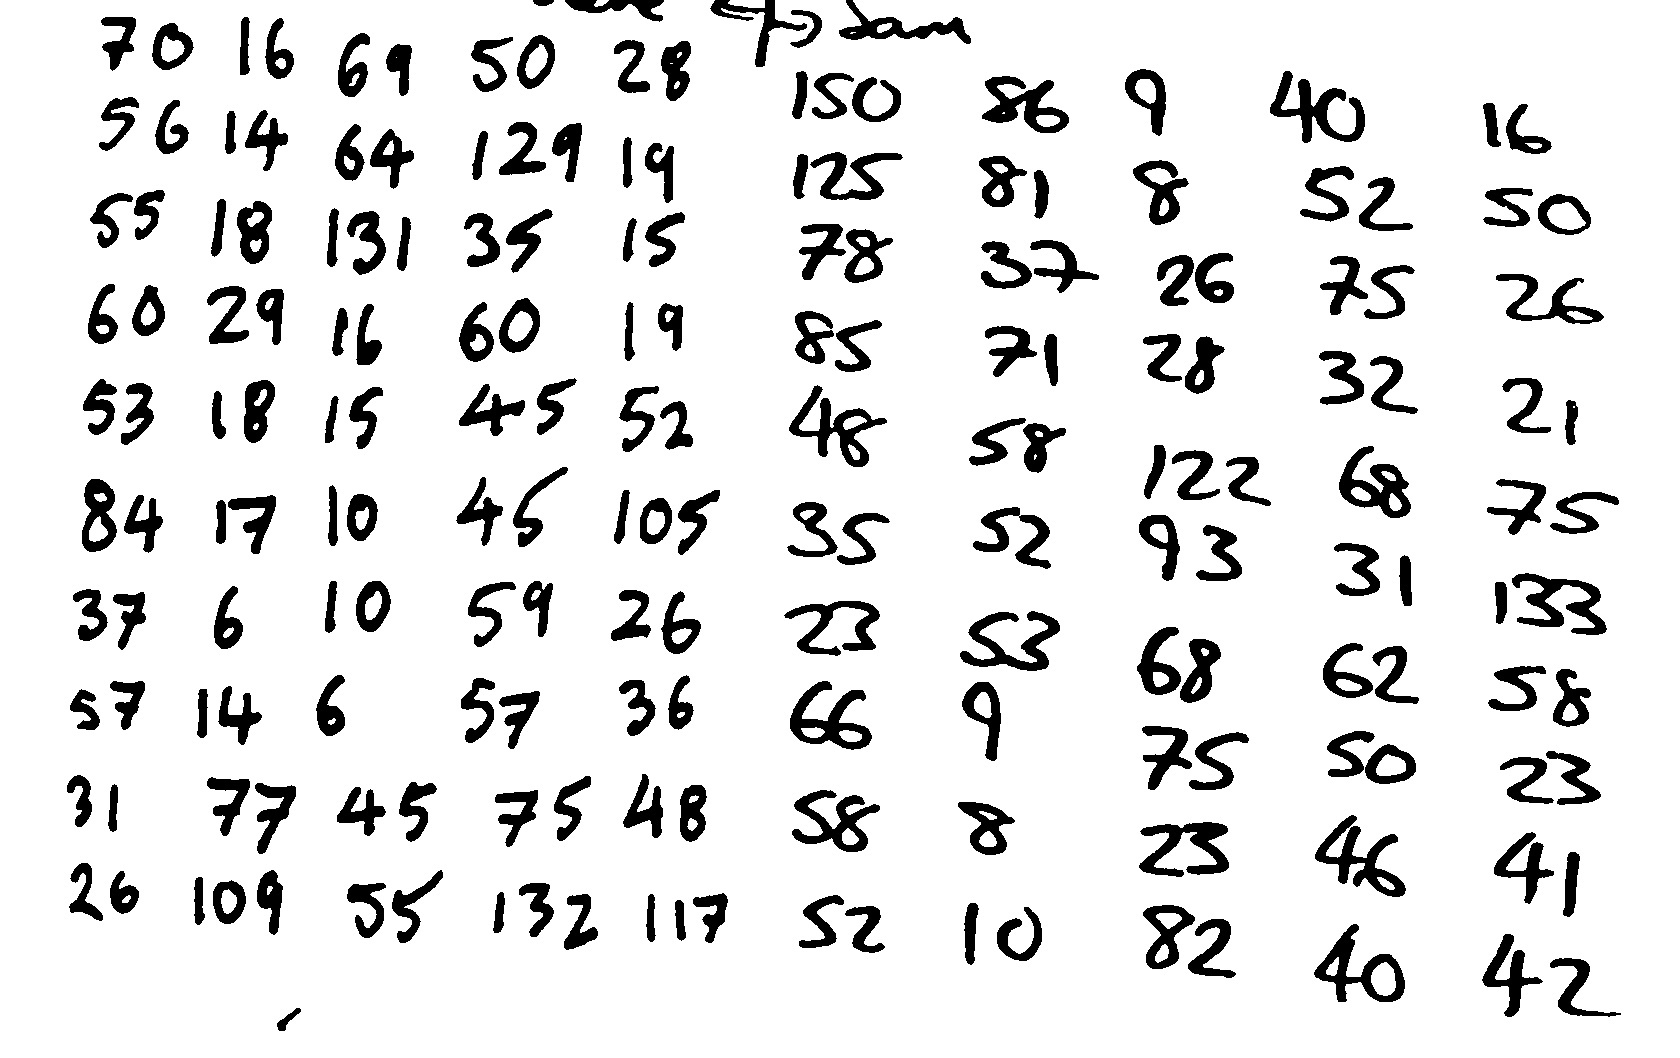 Sam
70 16 69 50 28 150 86 9 40 16
56 14 64 129 19 125 81 8 52 50
55 18 131 35 15 78 37 26 75 26
60 29 16 60 19 85 71 28 32 21
53 18 15 45 52 48 58 122 68 75
84 17 10 45 105 35 52 93 31 133
37 6 10 59 26 23 53 68 62 58
57 14 6 57 36 66 9 75 50 23
31 77 45 75 48 58 8 23 46 41
26 109 55 132 117 52 10 82 40 42